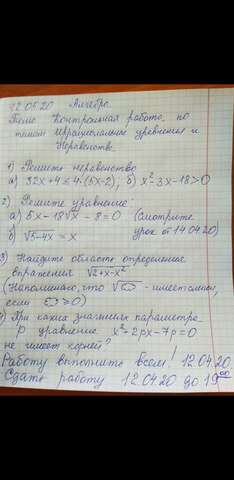 12.05.20 Алгебра.
Тема Контрольная работа по
темам Иррациональные уравнения и
Неравенства.
1) Решите неравенство
а) 32x+4≤4·(5x-2), б) x²-3x-18>0
2) Решите уравнение:
а) 5x-18√x-8=0 (Смотрите
б) √5-4x = x урок от 14.04.20)
3) Найдите область определения
выражения √2+x-x²
(Напоминаю, что √▭ -имеет смысл,
если ▭≥0)
4) При каких значениях параметра
p уравнение x²-2px-7p=0
не имеет корней?
Работу выполнить всем! 12.04.20
Сдать работу 12.04.20 до 19⁰⁰